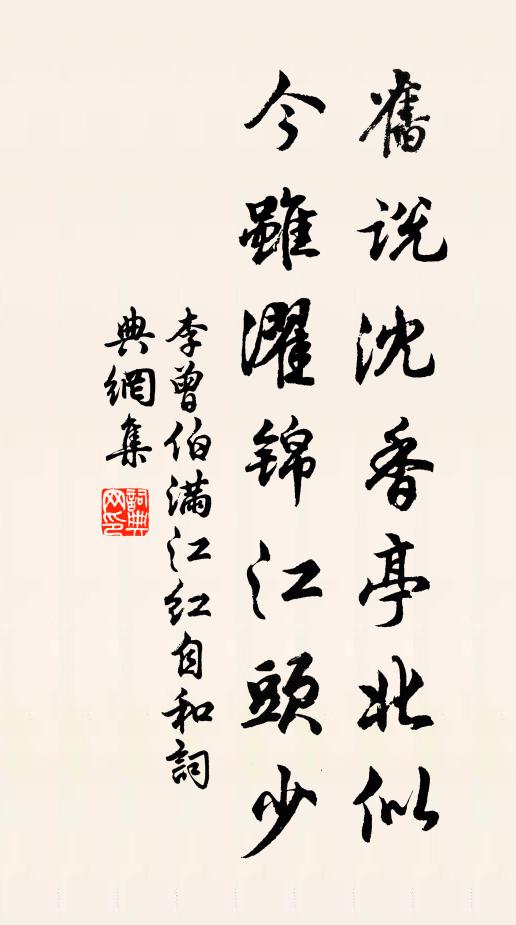 舊說沈香亭北似
今雖濯錦江頭少
李曾伯滿江紅自和詞
典網集
詞典網印